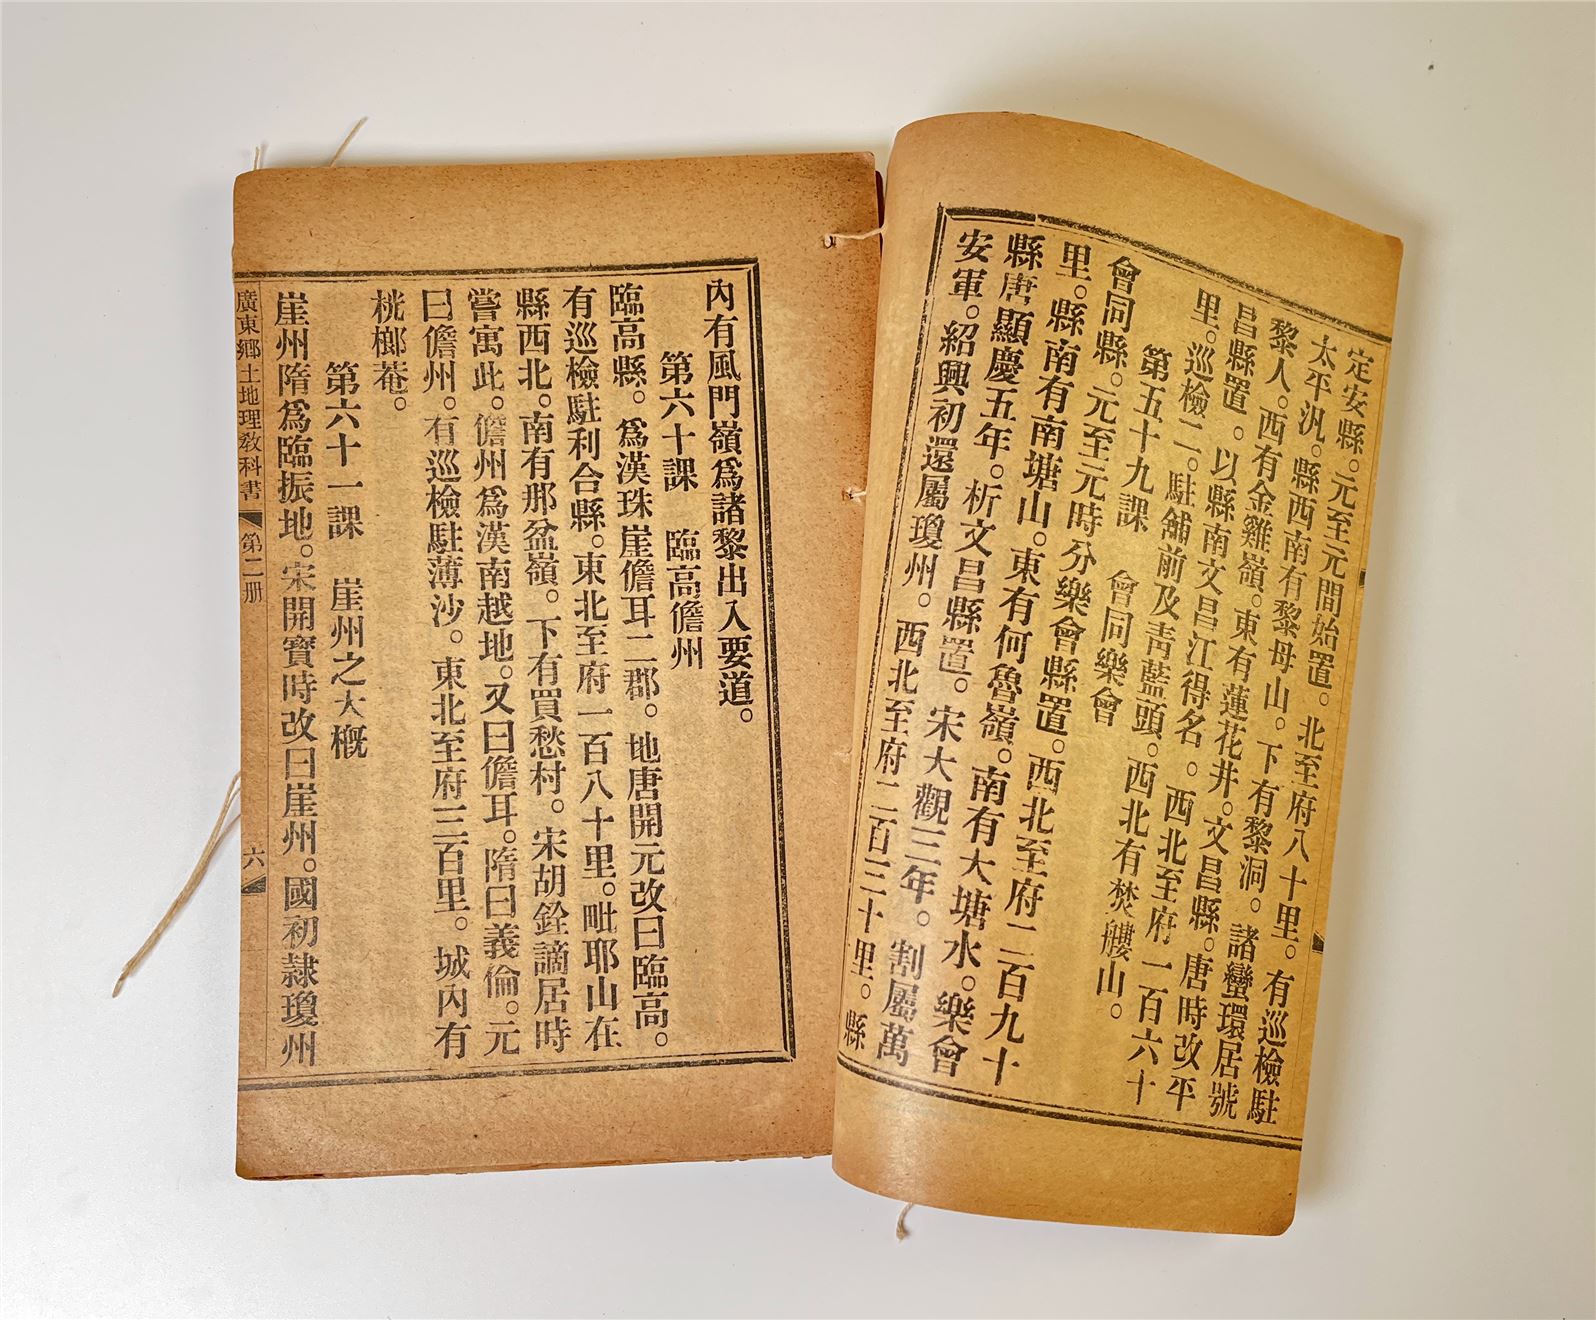 定安縣。元至元間始置。北至府八十里。有巡檢駐
太平汛。縣西南有黎母山。下有黎洞。諸蠻環居號
黎人。西有金雞嶺。東有蓮花井。文昌縣。唐時改平
昌縣置。以縣南文昌江得名。西北至府一百六十
里。巡檢二。駐舖前及青藍頭。西北有焚艛山。
第五十九課 會同樂會
會同縣。元至元時分樂會縣置。西北至府二百九十
里。縣南有南塘山。東有何魯嶺。南有大塘水。樂會
縣唐顯慶五年。析文昌縣置。宋大觀三年。割屬萬
安軍。紹興初還屬瓊州。西北至府二百三十里。縣
內有風門嶺爲諸黎出入要道。
第六十課 臨高儋州
臨高縣。爲漢珠崖儋耳二郡。地唐開元改曰臨高。
有巡檢駐利合縣。東北至府一百八十里。毗耶山在
縣西北。南有那盆嶺。下有買愁村。宋胡銓謫居時
嘗寓此。儋州爲漢南越地。又曰儋耳。隋曰義倫。元
曰儋州。有巡檢駐薄沙。東北至府三百里。城內有
桄榔菴。
第六十一課 崖州之大概
崖州隋爲臨振地。宋開寶時改曰崖州。國初隸瓊州
廣東鄉土地理敎科書 第二册 六